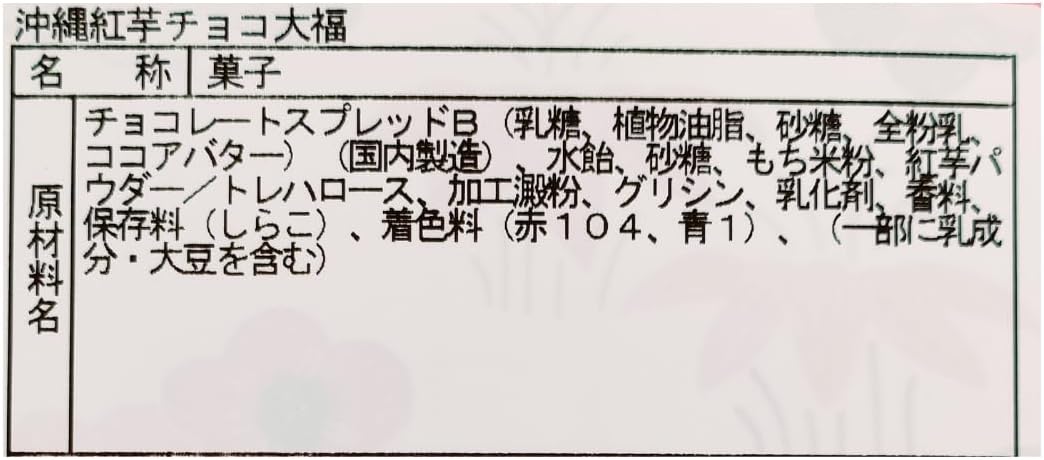 沖縄紅芋チョコ大福
名　称 菓子
原材料名
チョコレートスプレッドB（乳糖、植物油脂、砂糖、全粉乳、
ココアバター）（国内製造）、水飴、砂糖、もち米粉、紅芋パ
ウダー／トレハロース、加工澱粉、グリシン、乳化剤、香料、
保存料（しらこ）、着色料（赤１０４、青１）、（一部に乳成
分・大豆を含む）